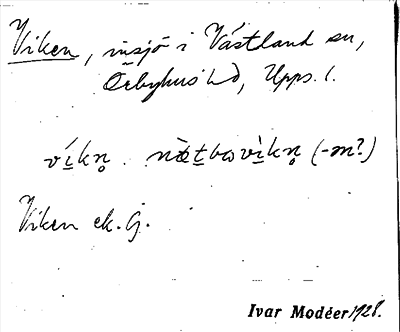 Viken, insjö i Västland sn,
Örbyhus hd, Upps. l.
víkn̥ nə̀tbωvìkn̥ (-m?)
Viken ek. G.
Ivar Modéer 1928.